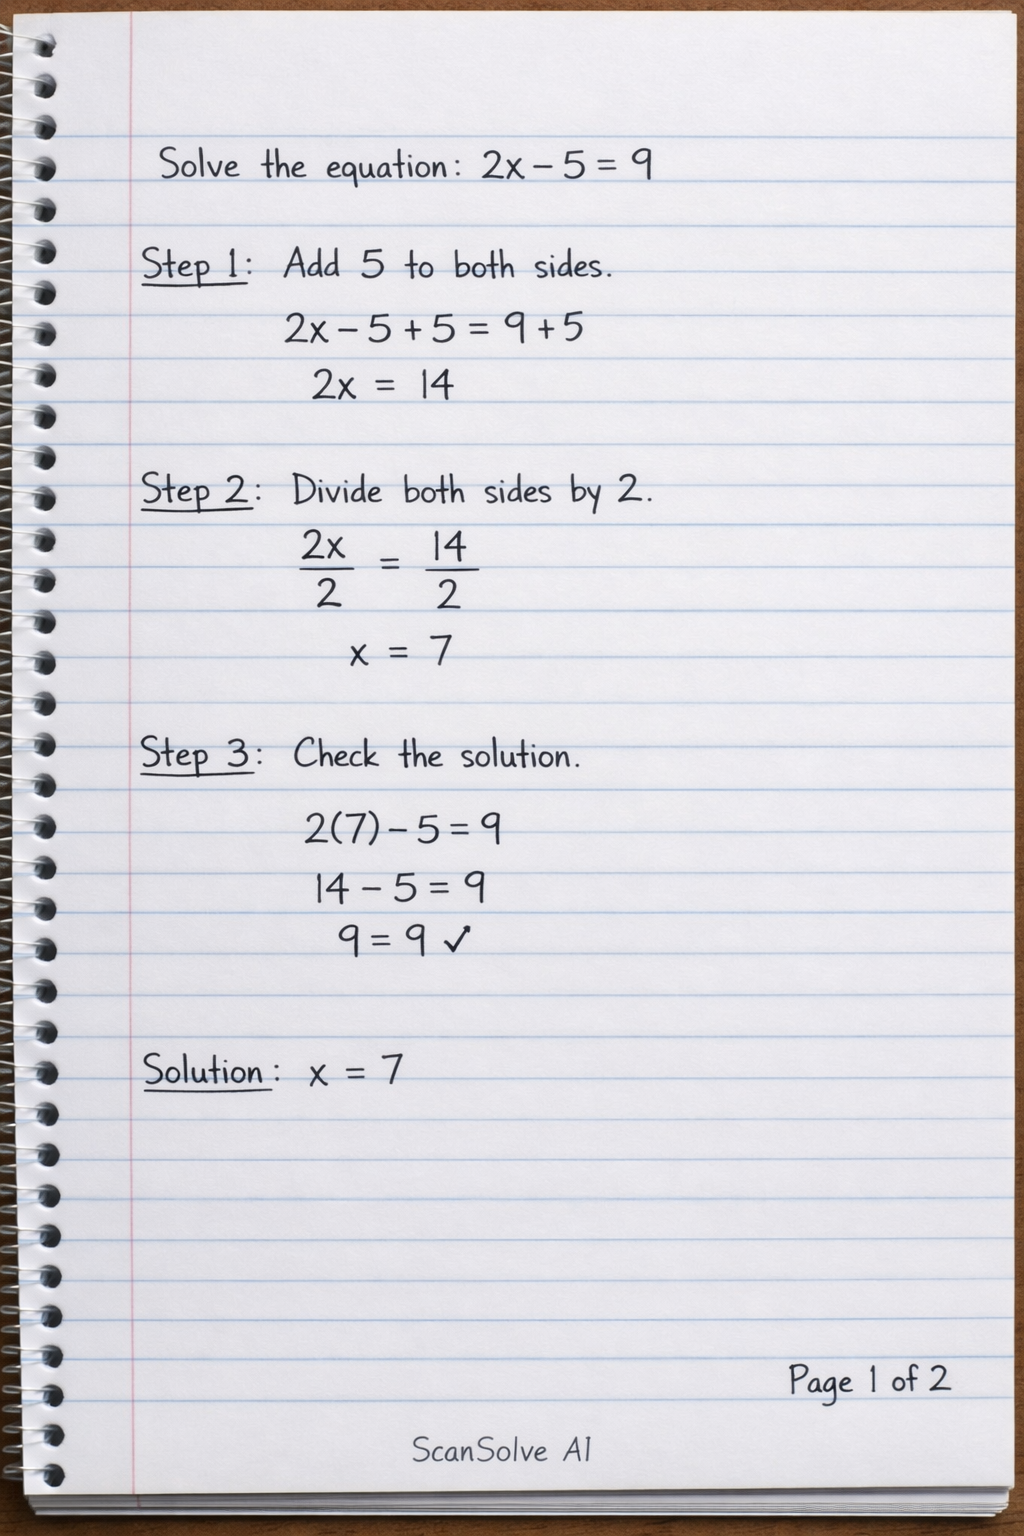 Solve the equation: 2x − 5 = 9
Step 1: Add 5 to both sides.
2x − 5 + 5 = 9 + 5
2x = 14
Step 2: Divide both sides by 2.
2x/2 = 14/2
x = 7
Step 3: Check the solution.
2(7) − 5 = 9
14 − 5 = 9
9 = 9 ✓
Solution: x = 7
Page 1 of 2
ScanSolve AI